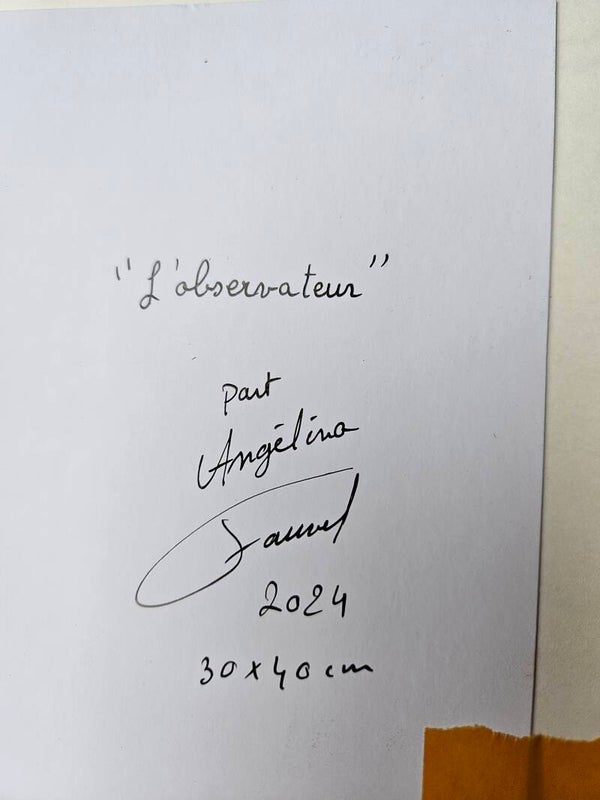 "L'observateur"
part
Angélina
2024
30x40 cm